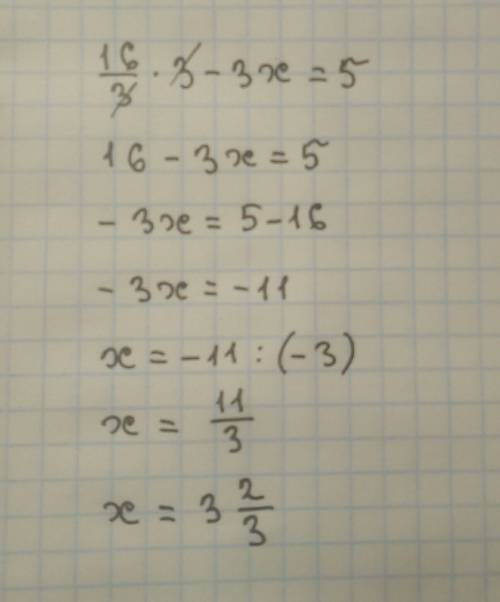 16/3 · 3 - 3x = 5
16 - 3x = 5
- 3x = 5 - 16
- 3x = - 11
x = - 11 : (- 3)
x = 11/3
x = 3 2/3